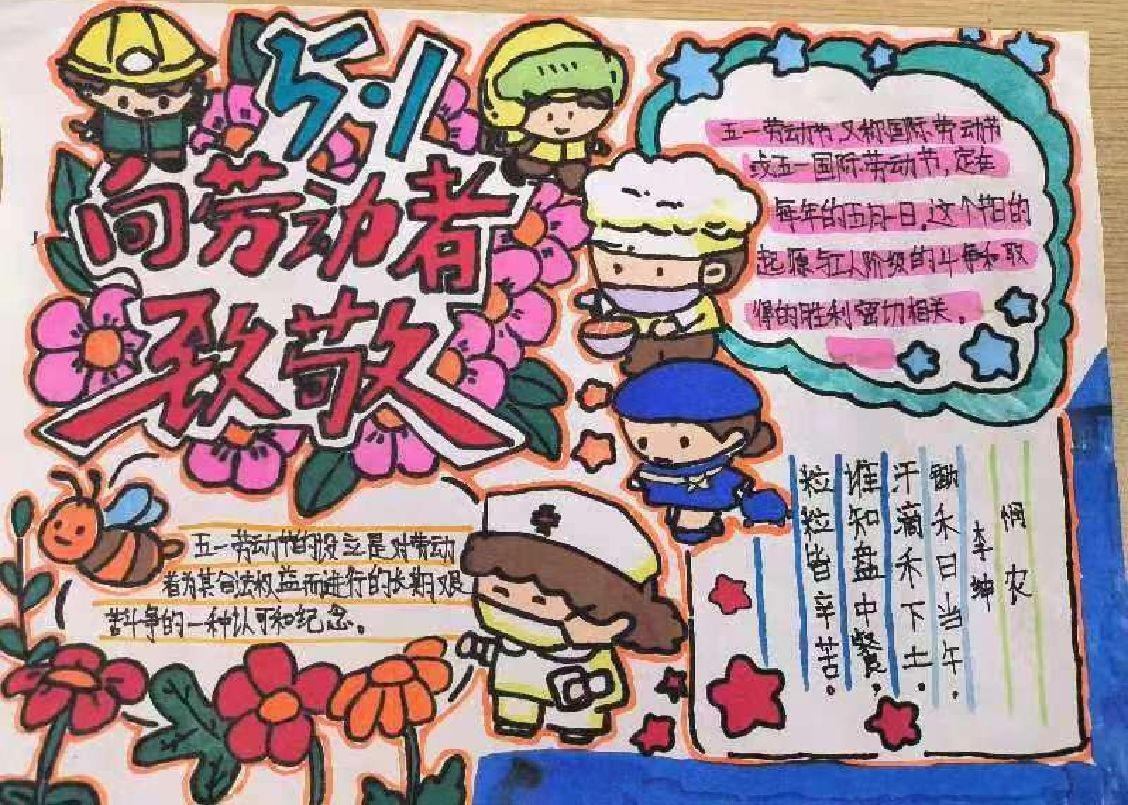 5·1
向劳动者
致敬
五一劳动节又称国际劳动节
或五一国际劳动节,定在
每年的五月一日.这个节日的
起源与工人阶级的斗争和取
得的胜利密切相关.
五一劳动节的设立是对劳动
者为其合法权益而进行的长期艰
苦斗争的一种认可和纪念。
悯农
李坤
锄禾日当午.
汗滴禾下土.
谁知盘中餐.
粒粒皆辛苦.